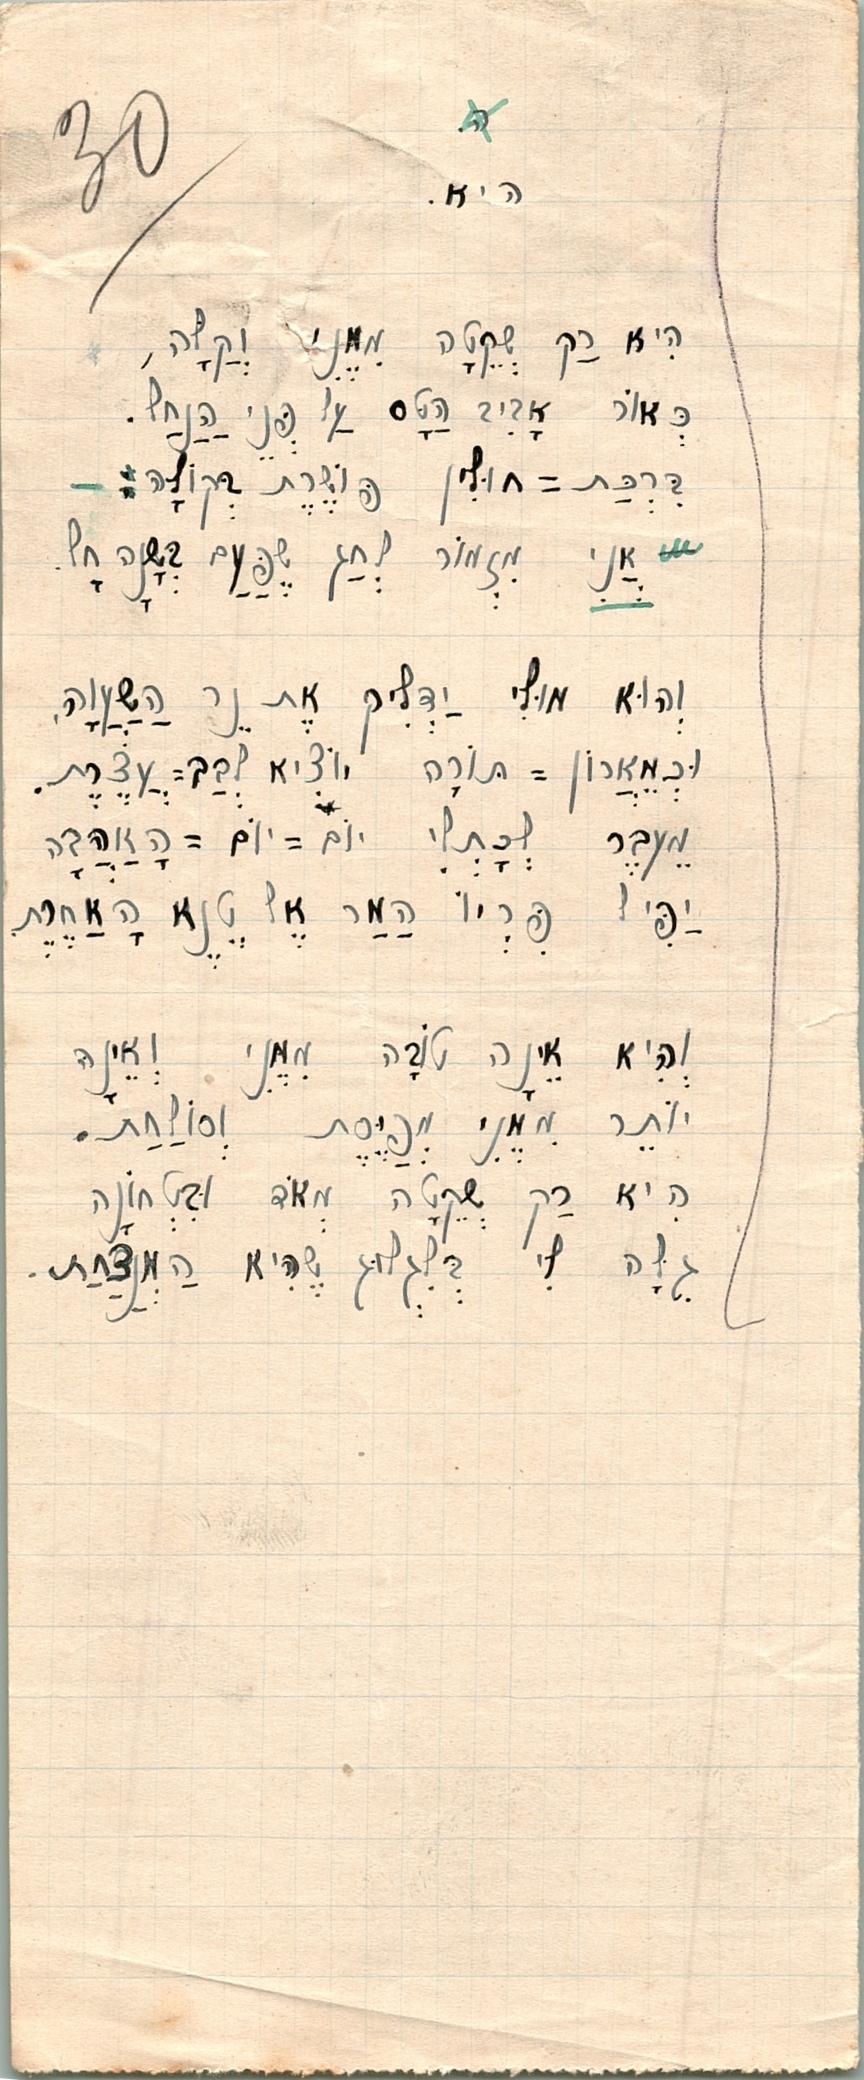 30
ה.
היא.
הִיא רַק שְׁקֵטָה מִמֶּנִּי וְקַלָּה,
כְּאוֹר אָבִיב הַטָּס עַל פְּנֵי הַנַּחַל.
בִּרְכַּת = חוּלִּין פּוֹשֶׁרֶת בְּקוֹלָהּ –
אֲנִי מִזְמוֹר לְחַג שֶׁפַּעַם בְּשָׁנָה חָל.
וְהוּא מוּלִי יַדְלִיק אֶת נֵר הַשַּׁעֲוָה,
וּכְמֵאֲרוֹן = תּוֹרָה יוֹצִיא לְבַב = עֲצֶרֶת.
מֵעֵבֶר לְכָתְלֵי יוֹם = יוֹם = הָאַהֲבָה
יַפִּיל פִּרְיוֹ הַמַּר אֶל טֶנֶא הָאַחֶרֶת.
וְהִיא אֵינָהּ טוֹבָה מִמֶּנִּי וְאֵינָהּ
יוֹתֵר מִמֶּנִּי מְפַיֶּסֶת וְסוֹלַחַת.
הִיא רַק שְׁקֵטָה מְאֹד וּבִטְחוֹנָהּ
גִּלָּה לִי בְּלִגְלוּג שֶׁהִיא הַמְנַצַּחַת.